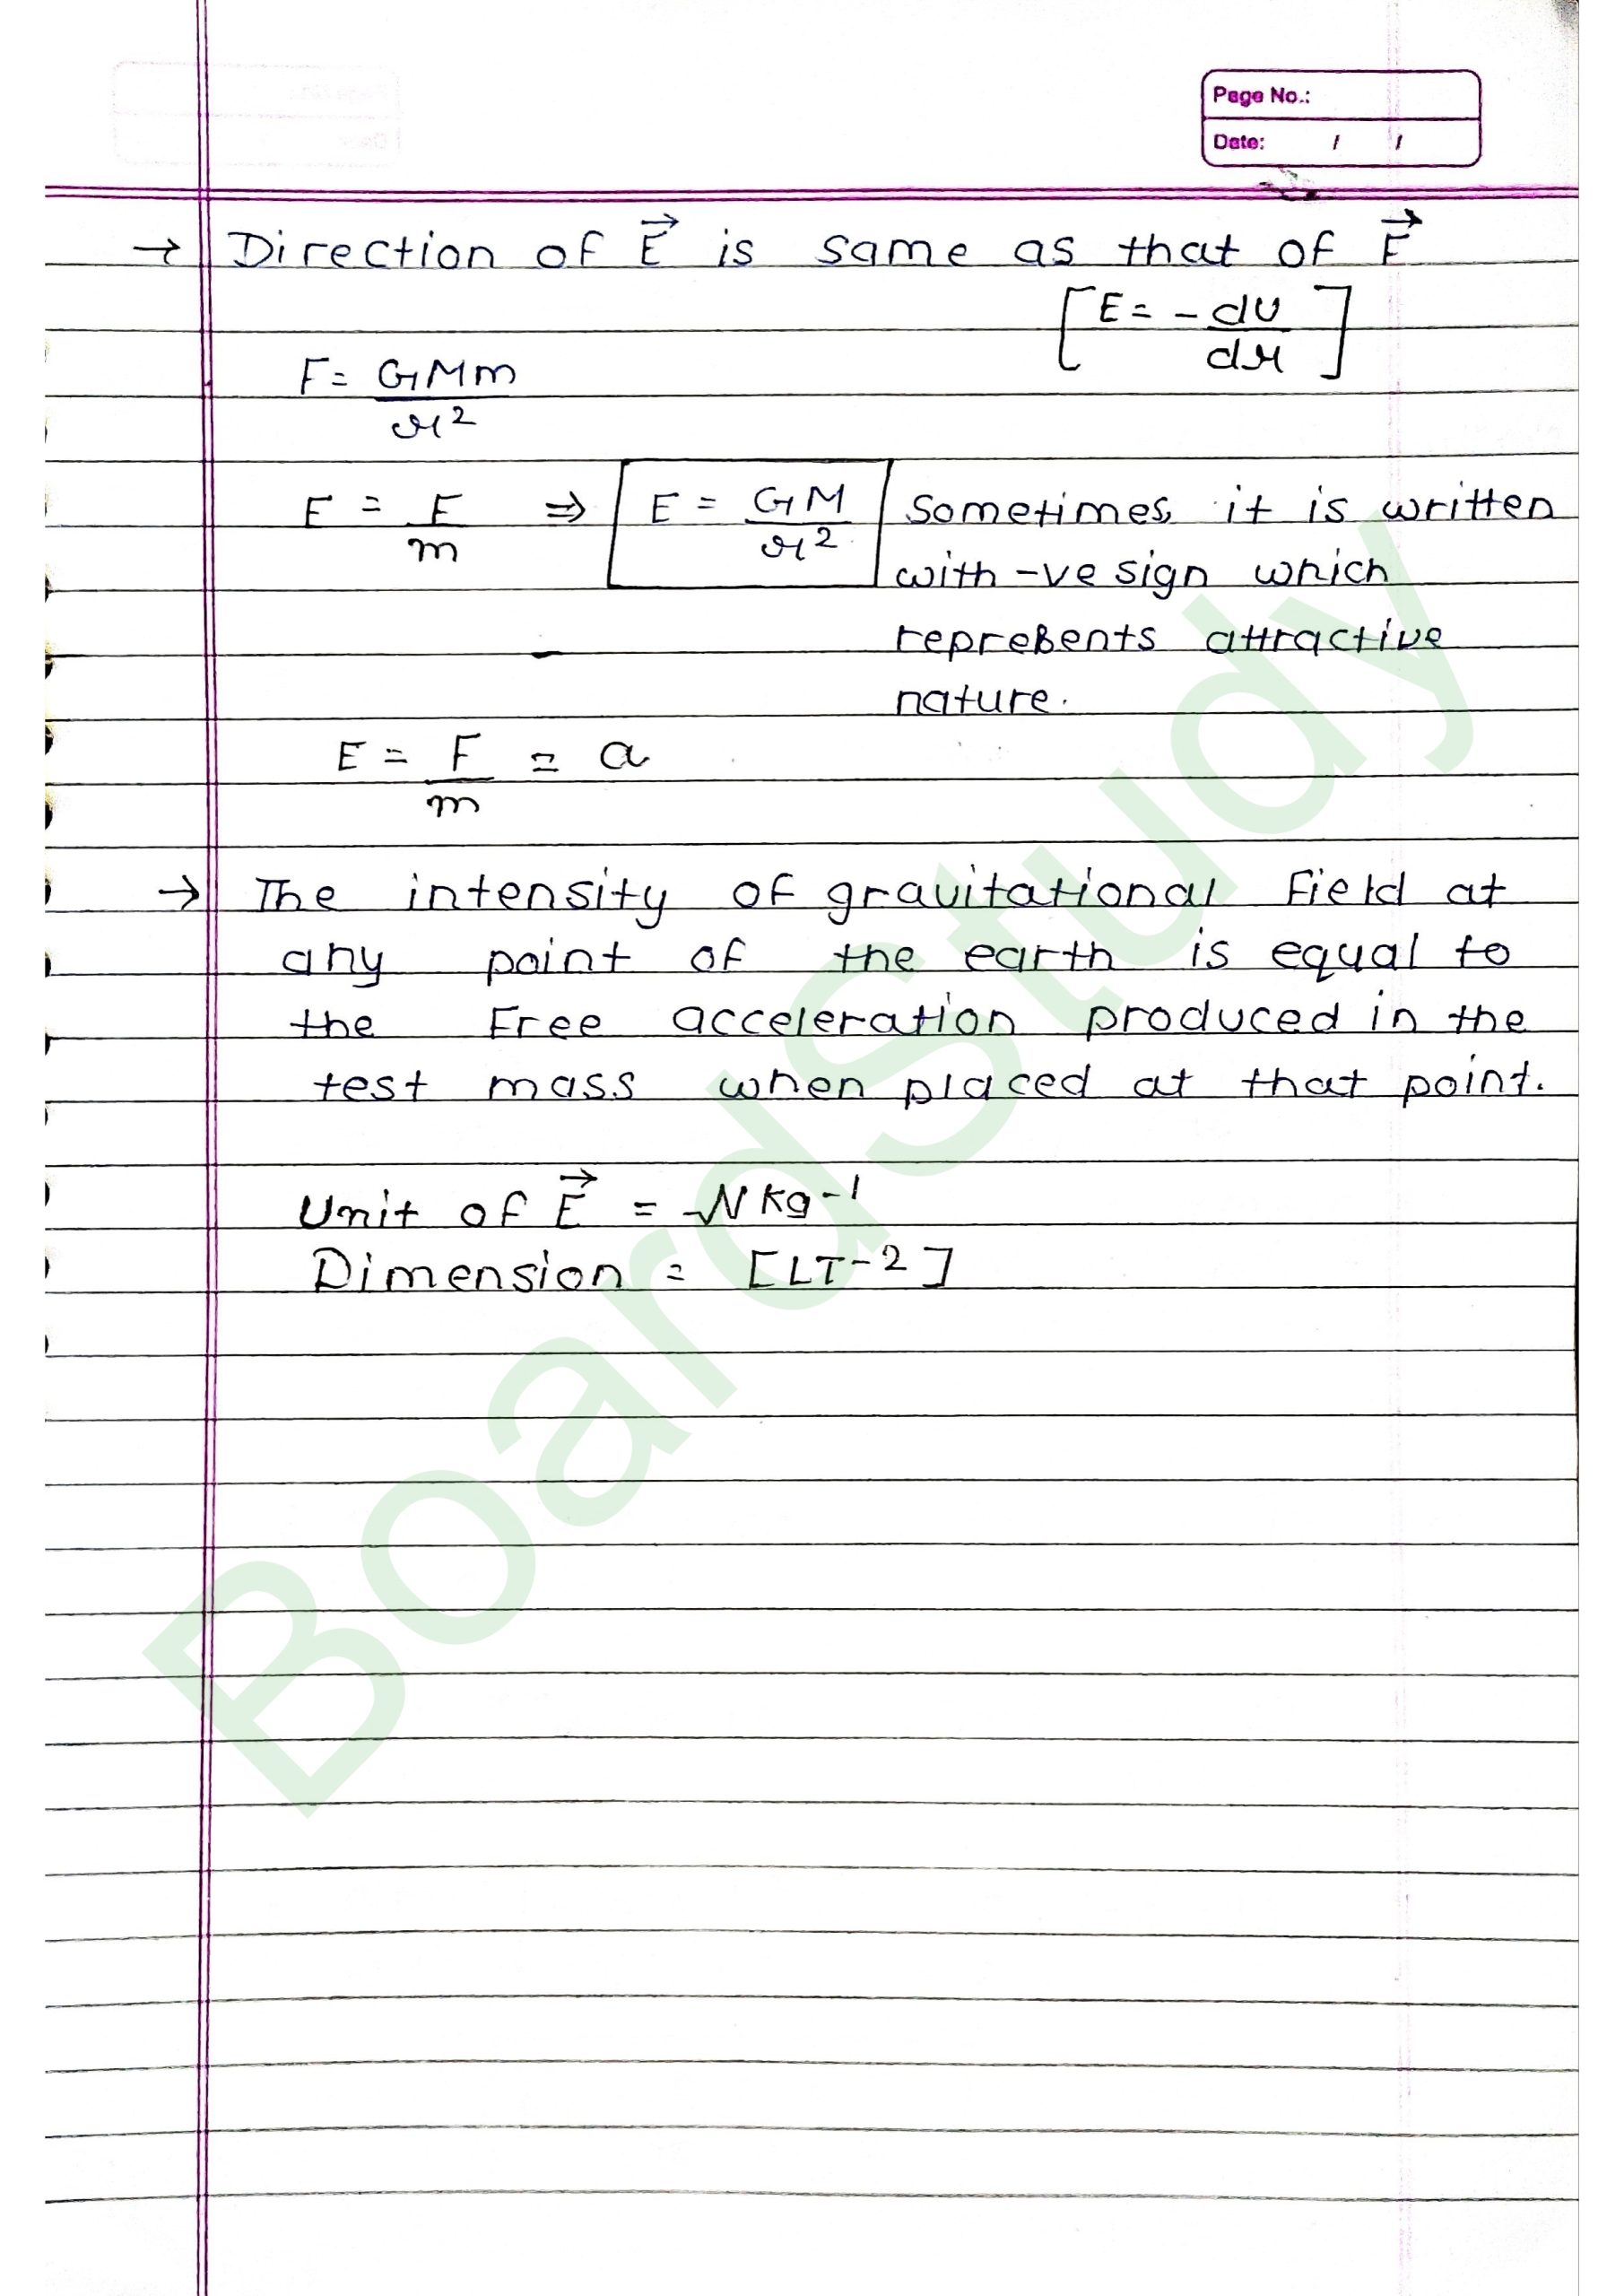 Page No.:
Date: / /
→ Direction of E⃗ is same as that of F⃗
[E = -dU/dr]
F = GMm/r²
E = F/m ⇒ E = GM/r² Sometimes it is written
with -ve sign which
represents attractive
nature.
E = F/m = a
→ The intensity of gravitational field at
any point of the earth is equal to
the free acceleration produced in the
test mass when placed at that point.
Unit of E⃗ = N kg⁻¹
Dimension = [LT⁻²]
BoardStudy